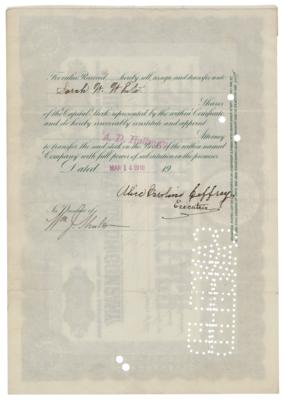 For value Received, hereby sell, assign and transfer unto
Sarah W. White
Shares
of the Capital Stock represented by the within Certificate
and do hereby irrevocably constitute and appoint
Attorney
to transfer the said stock on the Books of the within named
Company with full power of substitution in the premises.
Dated MAR 14 1910 19
Alice Caroline Jeffrey
Executrix
In Presence of
Wm J.